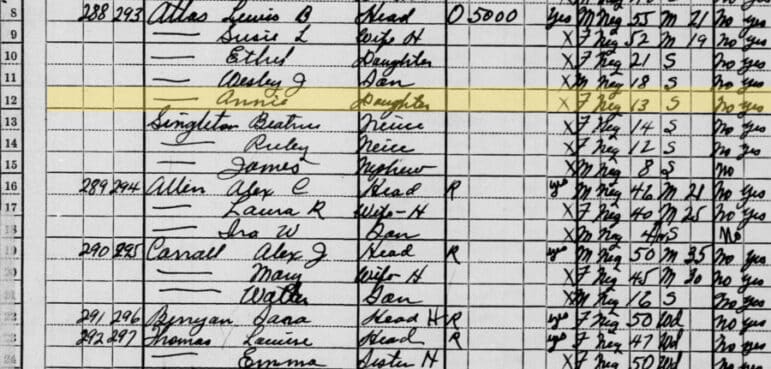 8 288 293 Atlas Lewis B Head O 5000 yes M Neg 55 M 21 No yes
9 — Susie L Wife H X F Neg 52 M 19 No yes
10 — Ethel Daughter X F Neg 21 S No yes
11 — Wesley J Son X M Neg 18 S No yes
12 — Annie Daughter X F Neg 13 S No yes
13 Singleton Beatrus Neice X F Neg 14 S No yes
14 — Neice X F Neg 12 S No yes
15 — James Nephew X M Neg 8 S No
16 289 294 Allen Alex C Head R yes M Neg 46 M 21 No yes
17 — Laura R Wife-H X F Neg 40 M 25 No yes
18 — Ira W Son X M Neg S No
19 290 295 Carrall Alex J Head R yes M Neg 50 M 35 No yes
20 — Mary Wife H X F Neg 45 M 30 No yes
21 — Walter Son X M Neg 16 S No yes
22 291 296 Benyan Head H R yes F Neg 50 Wd No yes
23 292 297 Thomas Head R yes F Neg 47 Wd No yes
24 — Emma Sister H X F Neg 50 Wd No yes